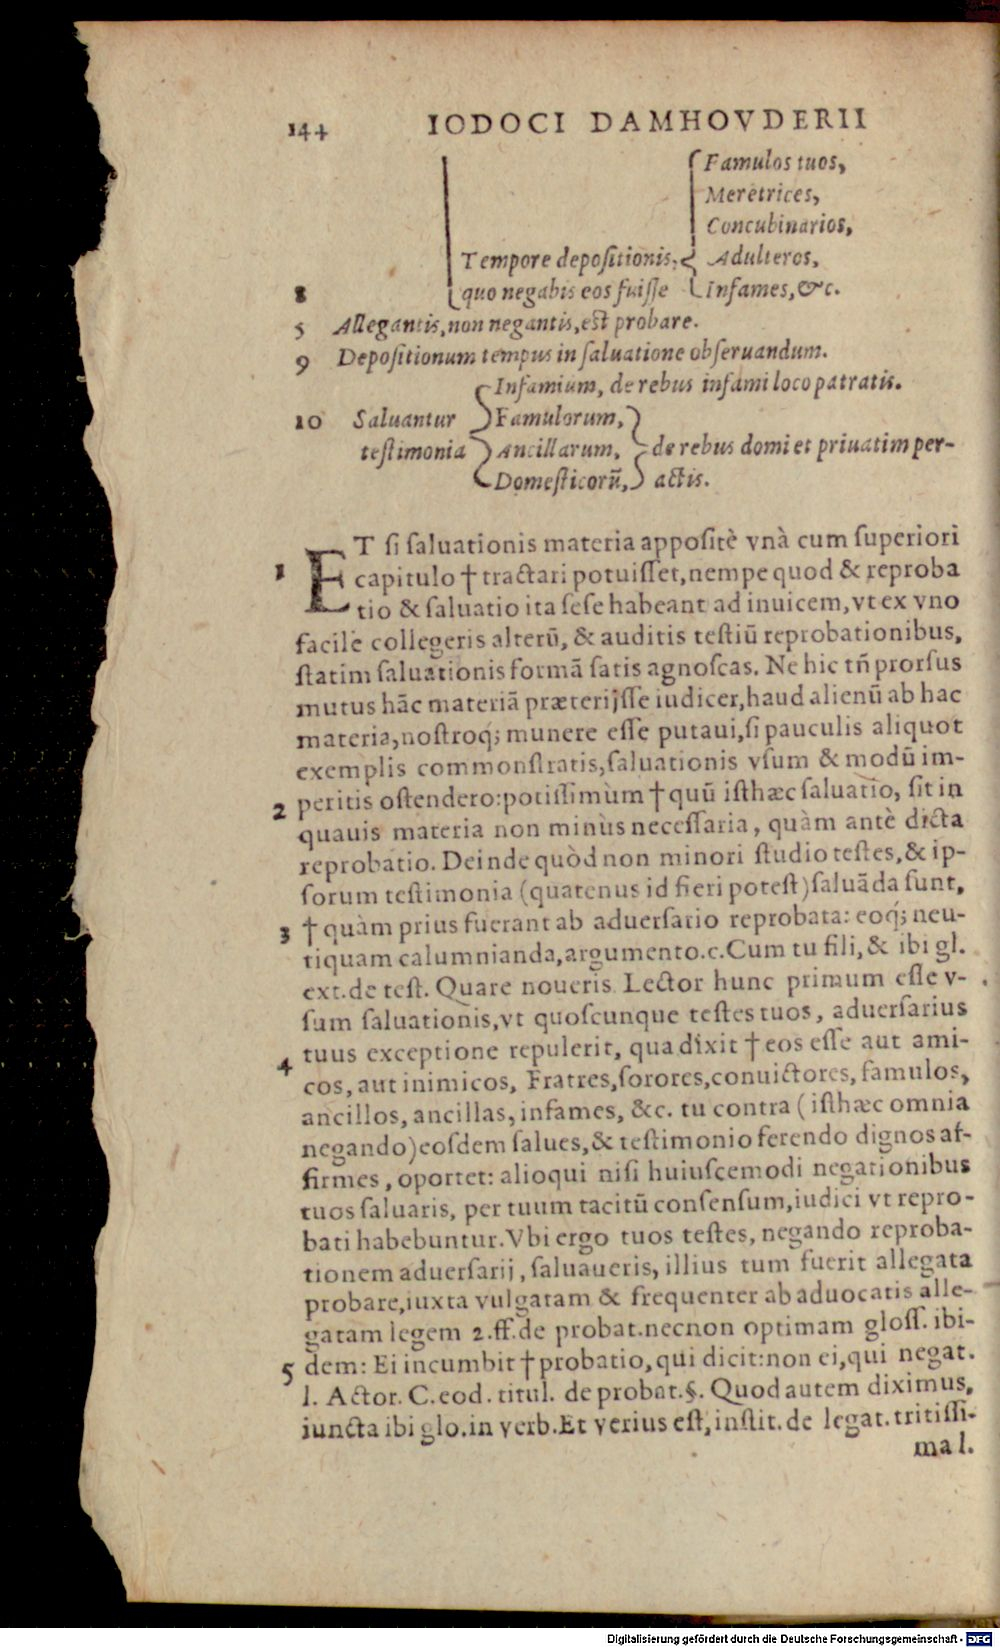 144 IODOCI DAMHOVDERII
Famulos tuos,
Meretrices,
Concubinarios,
Tempore depositionis, Adulteros,
8 quo negabis eos fuisse Infames, &c.
5 Allegantis, non negantis, est probare.
9 Depositionum tempus in saluatione obseruandum.
Infamium, de rebus infami loco patratis.
10 Saluantur Famulorum,
testimonia Ancillarum, de rebus domi et priuatim per-
Domesticorũ, actis.
ET si saluationis materia appositè vnà cum superiori
1 capitulo † tractari potuisset, nempe quod & reproba
tio & saluatio ita sese habeant ad inuicem, vt ex vno
facilè collegeris alterũ, & auditis testiũ reprobationibus,
statim saluationis formã satis agnoscas. Ne hic tñ prorsus
mutus hãc materiã præterijsse iudicer, haud alienũ ab hac
materia, nostroq́; munere esse putaui, si pauculis aliquot
exemplis commonstratis, saluationis vsum & modũ im-
2 peritis ostendero: potissimùm † quũ isthæc saluatio, sit in
quauis materia non minùs necessaria, quàm antè dicta
reprobatio. Deinde quòd non minori studio testes, & ip-
sorum testimonia (quatenus id fieri potest) saluãda sunt,
3 † quàm prius fuerant ab aduersario reprobata: eoq́; neu-
tiquam calumnianda, argumento. c. Cum tu fili, & ibi gl.
ext. de test. Quare noueris Lector hunc primum esse v-
sum saluationis, vt quoscunque testes tuos, aduersarius
4 tuus exceptione repulerit, qua dixit † eos esse aut ami-
cos, aut inimicos, Fratres, sorores, conuictores, famulos,
ancillos, ancillas, infames, &c. tu contra (isthæc omnia
negando) eosdem salues, & testimonio ferendo dignos af-
firmes, oportet: alioqui nisi huiuscemodi negationibus
tuos saluaris, per tuum tacitũ consensum, iudici vt repro-
bati habebuntur. Vbi ergo tuos testes, negando reproba-
tionem aduersarij, saluaueris, illius tum fuerit allegata
probare, iuxta vulgatam & frequenter ab aduocatis alle-
gatam legem 2. ff. de probat. necnon optimam gloss. ibi-
5 dem: Ei incumbit † probatio, qui dicit: non ei, qui negat.
l. Actor. C. eod. titul. de probat. §. Quod autem diximus,
iuncta ibi glo. in verb. Et verius est, instit. de legat. tritissi-
ma l.
Digitalisierung gefördert durch die Deutsche Forschungsgemeinschaft - DFG